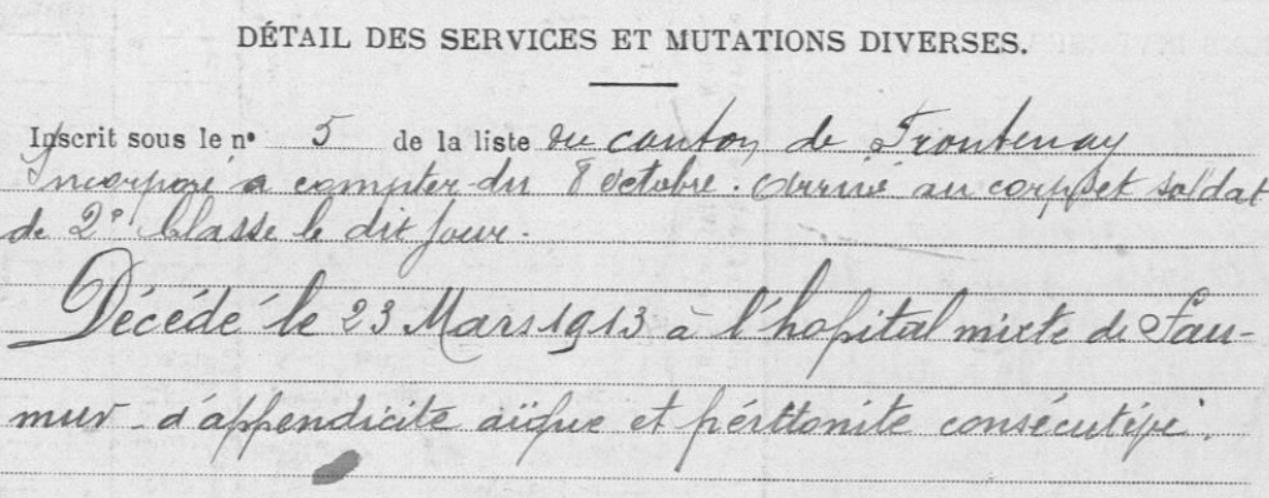 DÉTAIL DES SERVICES ET MUTATIONS DIVERSES.
Inscrit sous le n° 5 de la liste du canton de Frontenay
Incorporé a compter du 8 octobre. Arrivé au corps et soldat
de 2e Classe le dit jour.
Décédé le 23 Mars 1913 à l'hopital mixte de Sau-
mur d'appendicite aigue et péritonite consécutive.